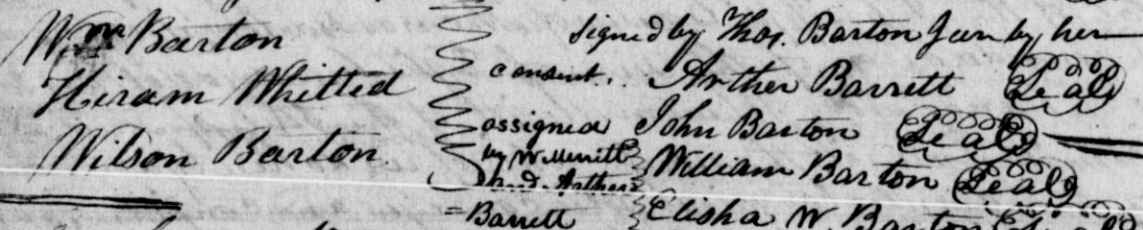 Wm Barton
Hiram Whitted
Wilson Barton
signed by Thos. Barton Jun by her
consent. Arther Barrett Seal
assigned John Barton Seal
by W. Merritt William Barton Seal
and Arther
Barrett Elisha W. Barton Seal